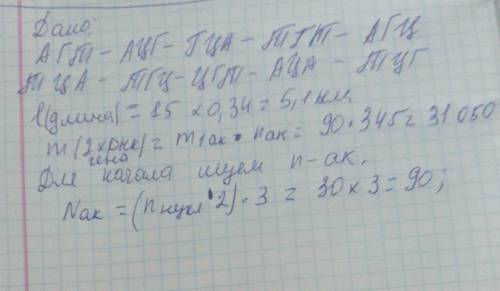 Дано:
АГТ - АЦГ - ГЦА - ТГТ - АГЦ
ТЦА - ТГЦ - ЦГТ - АЦА - ТЦГ
l(длина) = 15 × 0,34 = 5,1 нм.
m(2х рнк) = m1ак • nак = 90 • 345 = 31 050
гена
Для начала ищем n-ак.
Nак = (nнукл • 2) • 3 = 30 × 3 = 90;